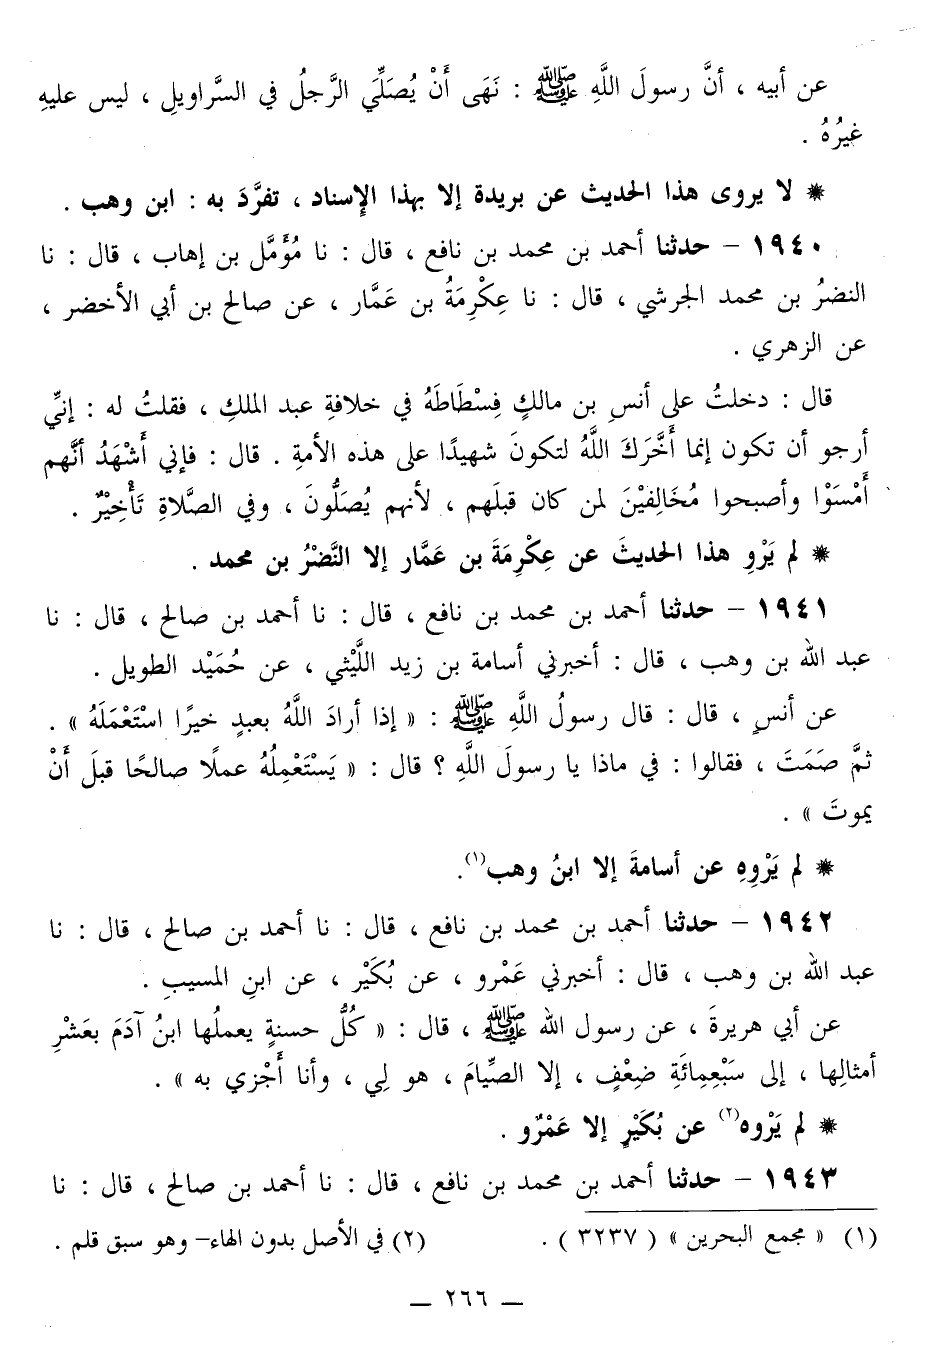 عن أبيه ، أنَّ رسولَ اللَّهِ ﷺ : نَهَى أَنْ يُصَلِّيَ الرَّجلُ في السَّراويلِ ، ليس عليهِ
غيرُهُ .
* لا يروى هذا الحديث عن بريدة إلا بهذا الإسناد ، تفرَّدَ به : ابن وهب .
١٩٤٠ – حدثنا أحمد بن محمد بن نافع ، قال : نا مُؤَمَّل بن إهاب ، قال : نا
النضرُ بن محمد الجرشي ، قال : نا عِكْرِمَةُ بن عَمَّار ، عن صالح بن أبي الأخضر ،
عن الزهري .
قال : دخلتُ على أنسِ بن مالكٍ فِسْطَاطَهُ في خلافةِ عبد الملكِ ، فقلتُ له : إنيِّ
أرجو أن تكون إنما أَخَّرَكَ اللَّهُ لتكونَ شهيدًا على هذه الأمةِ . قال : فإني أَشْهَدُ أنَّهم
أَمْسَوْا وأصبحوا مُخَالِفِيْنَ لمن كان قبلَهم ، لأنهم يُصَلُّونَ ، وفي الصَّلاةِ تَأْخِيْرٌ .
* لم يَرْوِ هذا الحديثَ عن عِكْرِمَةَ بن عَمَّار إلا النَّضْرُ بن محمد .
١٩٤١ – حدثنا أحمد بن محمد بن نافع ، قال : نا أحمد بن صالح ، قال : نا
عبد الله بن وهب ، قال : أخبرني أسامة بن زيد اللَّيْثي ، عن حُمَيْد الطويل .
عن أنسٍ ، قال : قال رسولُ اللَّهِ ﷺ : « إذا أرادَ اللَّهُ بعبدٍ خيرًا اسْتَعْمَلَهُ » .
ثمَّ صَمَتَ ، فقالوا : في ماذا يا رسولَ اللَّهِ ؟ قال : « يَسْتَعْمِلُهُ عملًا صالحًا قبلَ أَنْ
يموتَ » .
* لم يَرْوِهِ عن أسامةَ إلا ابنُ وهب(١).
١٩٤٢ – حدثنا أحمد بن محمد بن نافع ، قال : نا أحمد بن صالح ، قال : نا
عبد الله بن وهب ، قال : أخبرني عَمْرو ، عن بُكَيْر ، عن ابنِ المسيبِ .
عن أبي هريرةَ ، عن رسول الله ﷺ ، قال : « كُلُّ حسنةٍ يعملُها ابنُ آدَمَ بعَشْرِ
أمثالِها ، إلى سَبْعِمائَةِ ضِعْفٍ ، إلا الصِّيامَ ، هو لِي ، وأنا أَجْزي به » .
* لم يَرْوه(٢) عن بُكَيْرٍ إلا عَمْرٌو .
١٩٤٣ – حدثنا أحمد بن محمد بن نافع ، قال : نا أحمد بن صالح ، قال : نا
(١) « مجمع البحرين » ( ٣٢٣٧ ) . (٢) في الأصل بدون الهاء– وهو سبق قلم .
— ٢٦٦ —